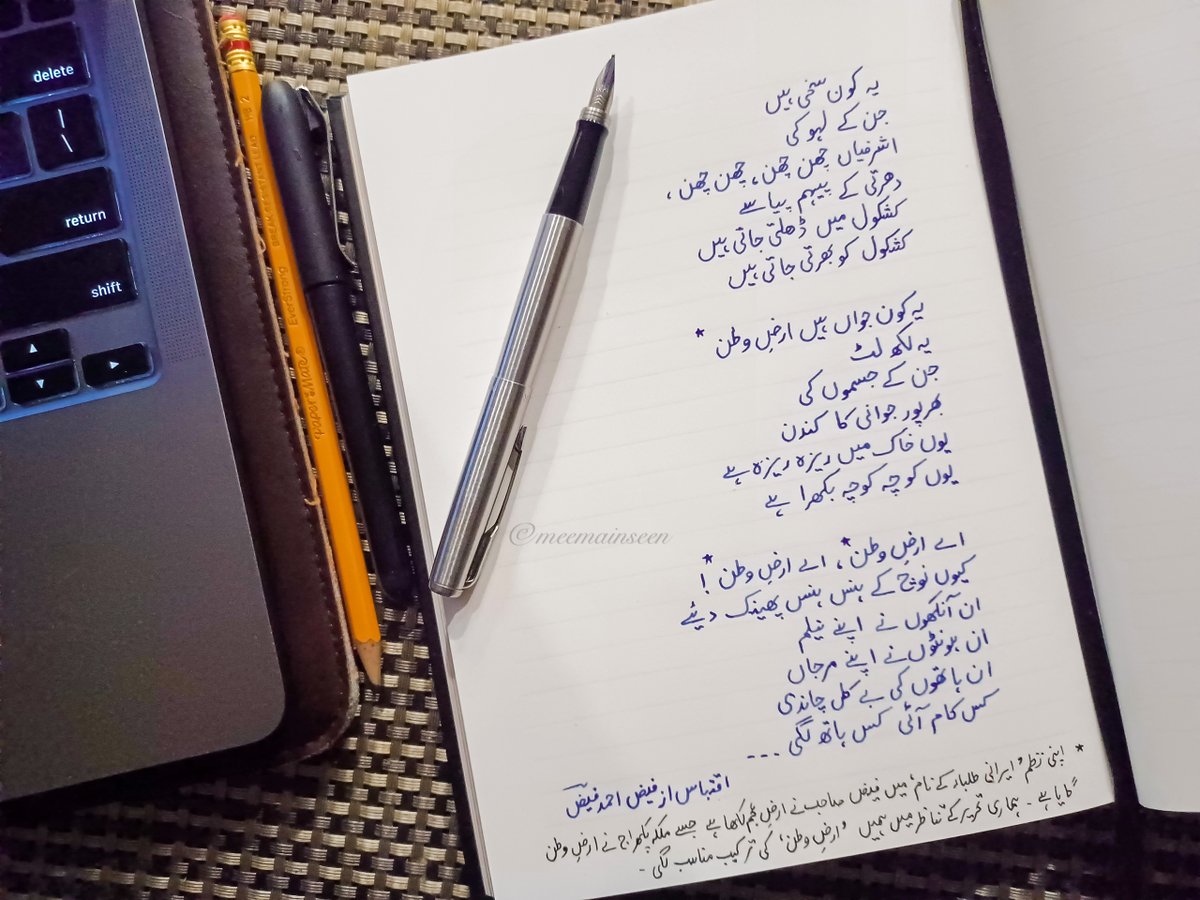 delete
|
\
return
shift
PAPER MATE® EverStrong
BREAK RESISTANT LEAD HB 2
یہ کون سخی ہیں
جن کے لہو کی
اشرفیاں چھن چھن، چھن چھن،
دھرتی کے پیہم پیاسے
کشکول میں ڈھلتی جاتی ہیں
کشکول کو بھرتی جاتی ہیں
یہ کون جواں ہیں ارضِ وطن *
یہ لکھ لٹ
جن کے جسموں کی
بھرپور جوانی کا کندن
یوں خاک میں ریزہ ریزہ ہے
یوں کوچہ کوچہ بکھرا ہے
@meemainseen
اے ارضِ وطن*، اے ارضِ وطن*!
کیوں نوچ کے ہنس ہنس پھینک دیئے
ان آنکھوں نے اپنے نیلم
ان ہونٹوں نے اپنے مرجاں
ان ہاتھوں کی بے کل چاندی
کس کام آئی کس ہاتھ لگی ۔۔۔
اقتباس از فیض احمد فیض
* اپنی نظم 'ایرانی طلباء کے نام' میں فیض صاحب نے ارضِ عجم لکھا ہے جسے ملکہ پکھراج نے ارضِ وطن
گایا ہے ۔ ہماری تحریر کے تناظر میں ہمیں 'ارضِ وطن' کی ترکیب مناسب لگی ۔